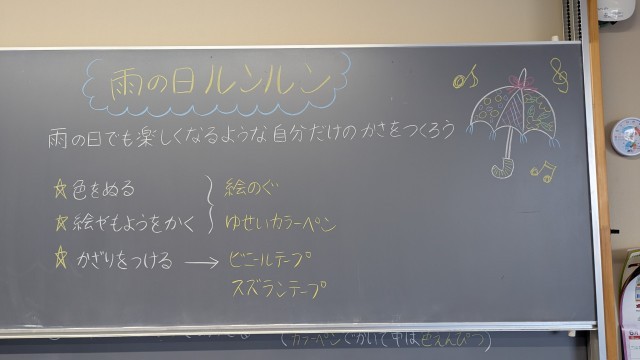 雨の日ルンルン
雨の日でも楽しくなるような自分だけのかさをつくろう
☆色をぬる
☆絵やもようをかく
絵のぐ
ゆせいカラーペン
☆かざりをつける → ビニールテープ
スズランテープ
(カラーペンでかいて中はぜえんぴつ)